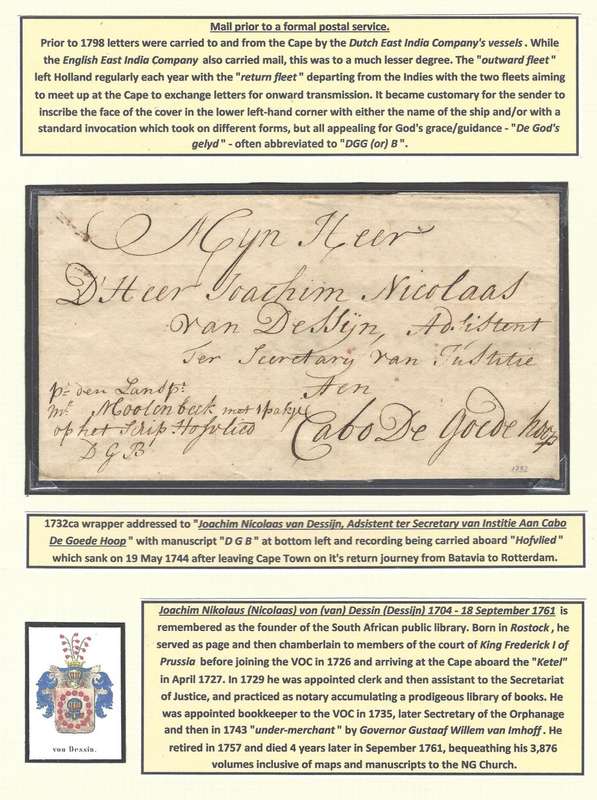 Mail prior to a formal postal service.
Prior to 1798 letters were carried to and from the Cape by the Dutch East India Company's vessels. While
the English East India Company also carried mail, this was to a much lesser degree. The "outward fleet"
left Holland regularly each year with the "return fleet" departing from the Indies with the two fleets aiming
to meet up at the Cape to exchange letters for onward transmission. It became customary for the sender to
inscribe the face of the cover in the lower left-hand corner with either the name of the ship and/or with a
standard invocation which took on different forms, but all appealing for God's grace/guidance - "De God's
gelyd" - often abbreviated to "DGG (or) B".
Mijn Heer
D'Heer Joachim Nicolaas
van Dessijn, Adsistent
ter Secretary van Justitie
Aen
Cabo De Goede hoop
pr den Landpt
mr Moolenbeek met 1 pakje
op het Scip Hofvlied
D G B
1732
1732ca wrapper addressed to "Joachim Nicolaas van Dessijn, Adsistent ter Secretary van Institie Aan Cabo
De Goede Hoop" with manuscript "D G B" at bottom left and recording being carried aboard "Hofvlied"
which sank on 19 May 1744 after leaving Cape Town on it's return journey from Batavia to Rotterdam.
von Dessin.
Joachim Nikolaus (Nicolaas) von (van) Dessin (Dessijn) 1704 - 18 September 1761 is
remembered as the founder of the South African public library. Born in Rostock, he
served as page and then chamberlain to members of the court of King Frederick I of
Prussia before joining the VOC in 1726 and arriving at the Cape aboard the "Ketel"
in April 1727. In 1729 he was appointed clerk and then assistant to the Secretariat
of Justice, and practiced as notary accumulating a prodigeous library of books. He
was appointed bookkeeper to the VOC in 1735, later Sectretary of the Orphanage
and then in 1743 "under-merchant" by Governor Gustaaf Willem van Imhoff. He
retired in 1757 and died 4 years later in Sepember 1761, bequeathing his 3,876
volumes inclusive of maps and manuscripts to the NG Church.